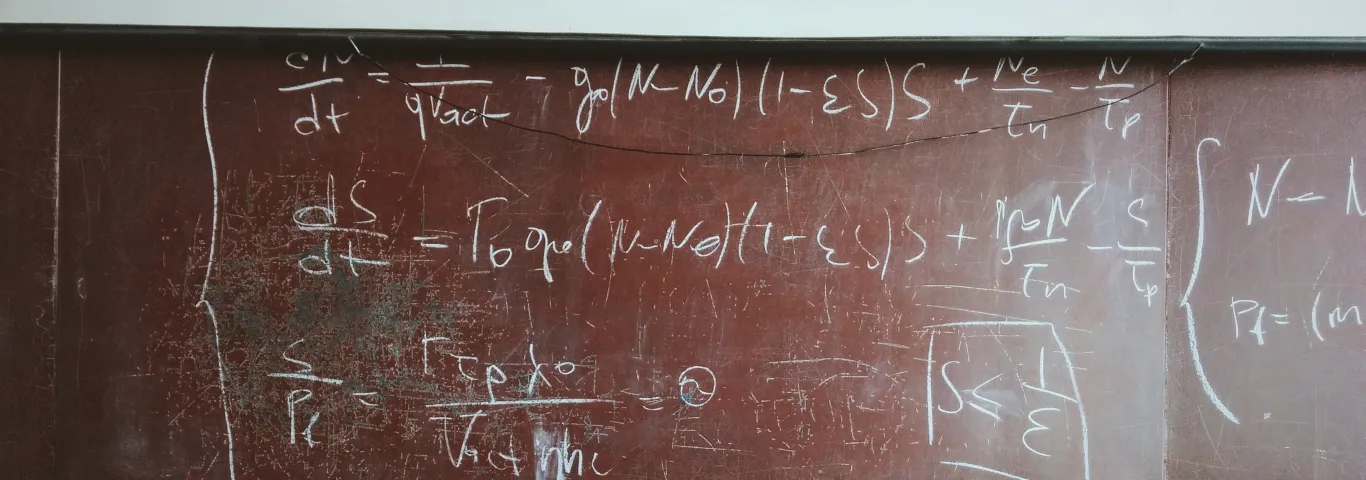 dN/dt = I/(qVact) - g0(N-N0)(1-εS)S + Ne/τn - N/τp
dS/dt = Γ0 g0(N-N0)(1-εS)S + Γβ0N/τn - S/τp
S/Pf = Γτpλ0/(Vact ηhc) = ②
S ≤ 1/ε
N - N
Pf = (m